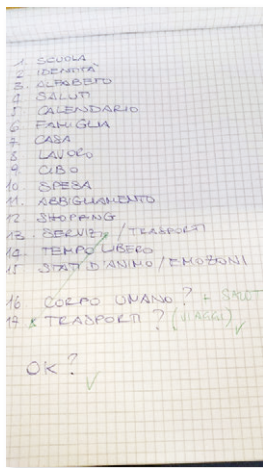 1. SCUOLA
2 IDENTITÀ
3. ALFABETO
4 SALUTI
5 CALENDARIO
6 FAMIGLIA
7. CASA
8 LAVORO
9 CIBO
10. SPESA
11. ABBIGLIAMENTO
12 SHOPPING
13. SERVIZI / TRASPORTI
14. TEMPO LIBERO
15 STATI D'ANIMO / EMOZIONI
16 CORPO UMANO? + SALUT
17 x TRASPORTI? (VIAGGI) ✓
OK?
✓